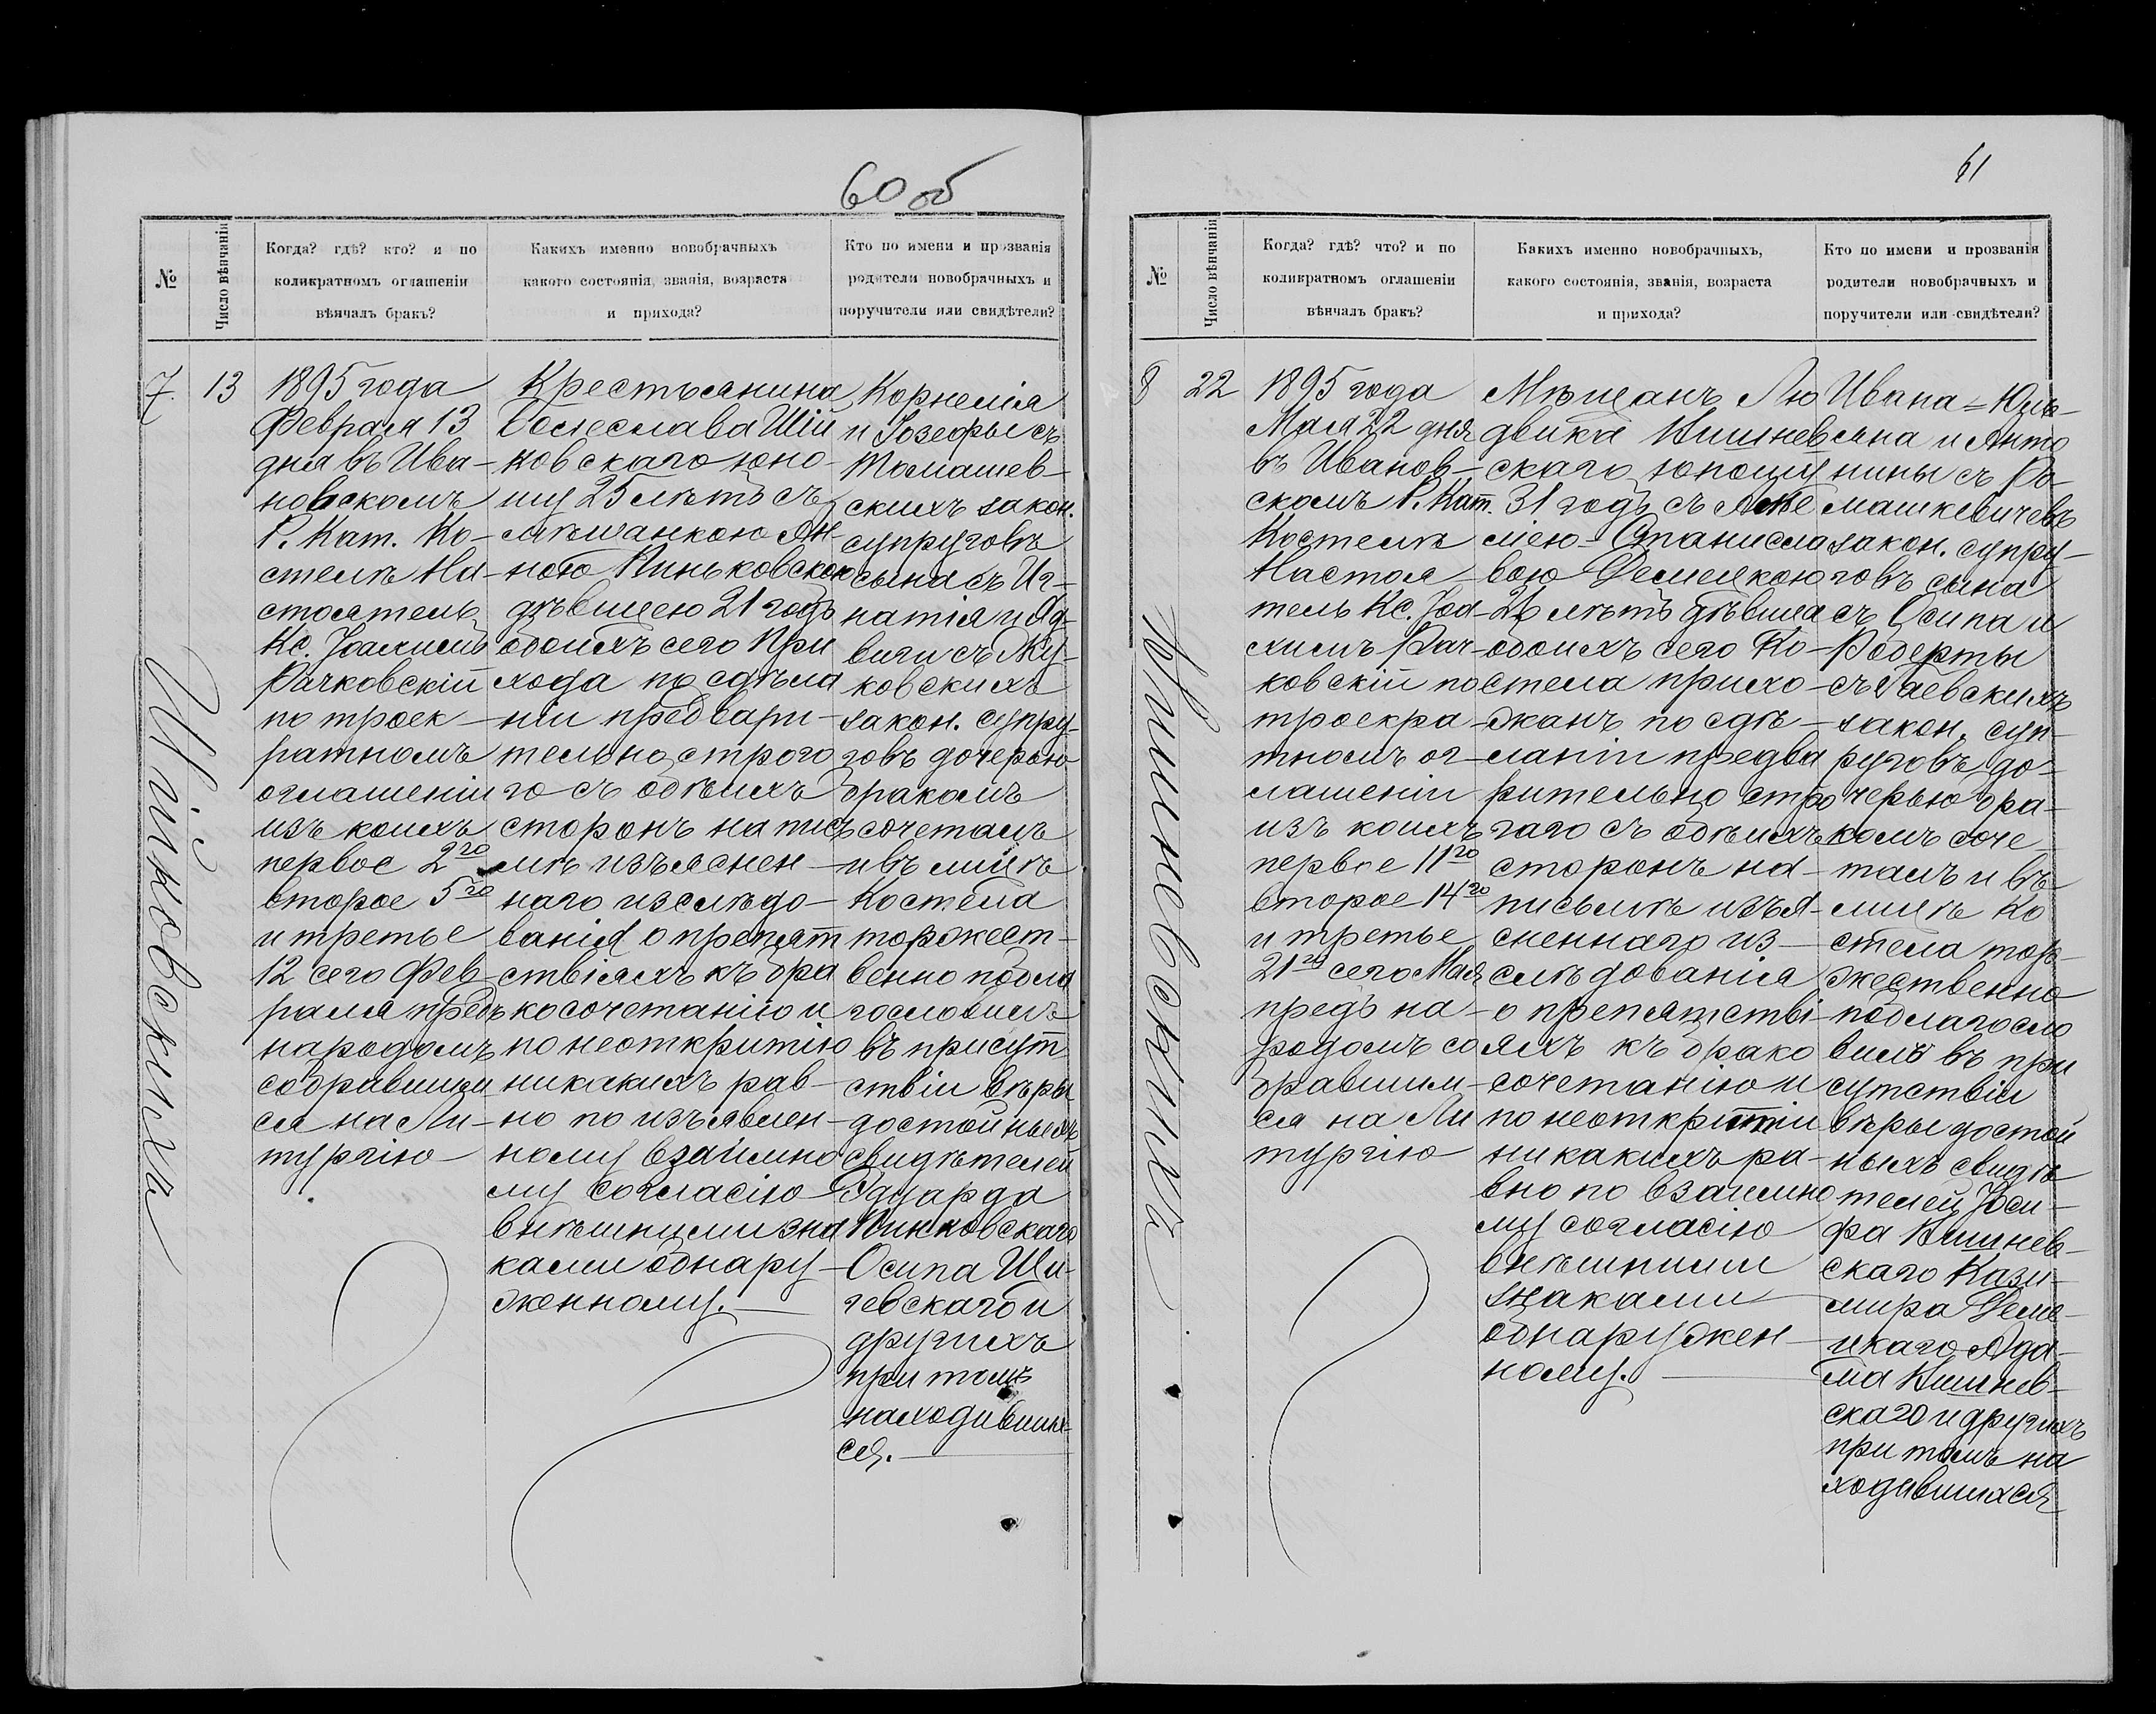 60 об
№
Число вѣнчанія
Когда? гдѣ? кто? и по
коликратномъ оглашеніи
вѣнчалъ бракъ?
Какихъ именно новобрачныхъ
какого состоянія, званія, возраста
и прихода?
Кто по имени и прозванія
родители новобрачныхъ и
поручители или свидѣтели?
7.
13
Шійковскихъ
1895 года
Февраля 13
дня въ Ива-
новскомъ
Р. Кат. Ко-
стелѣ На-
стоятель
Кс. Іоахимъ
Рачковскій
по троек-
ратномъ
оглашеніи
изъ коихъ
первое 2го
второе 5го
и третье
12 сего Фев-
раля предъ
народомъ
собравшим
ся на Ли-
тургію
Крестьянина
Болеслава Шій
ковскаго юно-
шу 25 лѣтъ съ
мѣщанкою Ан-
ною Пиньковскою
дѣвицею 21 годъ
обоихъ сего При
хода по сдѣла
ніи предвари-
тельно строго
го съ обѣихъ
сторонъ на пись
мѣ изъяснен-
наго изслѣдо-
ванія о препят
ствіяхъ къ бра
косочетанію и
по неоткритію
никакихъ рав-
но по изъявлен-
ному взаимно
му согласію
внѣшними зна
ками обнару-
женному.
Корнелія
и Іозефы съ
Томашев-
скихъ закон.
супруговъ
сына съ Иг-
натія и Яд-
виги съ Жу-
ковскихъ
закон. супру-
говъ дочерью
бракомъ
сочеталъ
и въ лицѣ
Костела
торжест-
венно побла
гословилъ
въ присут
ствіи вѣры
достойныхъ
свидѣтелей
Эдуарда
Пинковскаго
Осипа Ши-
гевскаго и
другихъ
при томъ
находивших-
ся.
61
№
Число вѣнчанія
Когда? гдѣ? что? и по
коликратномъ оглашеніи
вѣнчалъ бракъ?
Какихъ именно новобрачныхъ,
какого состоянія, званія, возраста
и прихода?
Кто по имени и прозванія
родители новобрачныхъ и
поручители или свидѣтели?
8
22
Вишневскихъ
1895 года
Мая 22 дня
въ Иванов-
скомъ Р. Кат.
Костелѣ
Настоя-
тель Кс. Іоа-
химъ Рач-
ковскій по
троекра-
тномъ ог-
лашеніи
изъ коихъ
первое 11го
второе 14го
и третье
21го сего Мая
предъ на-
родомъ со
бравшим-
ся на Ли
тургію
Мѣщанъ Лю
двика Вишнев
скаго юношу
31 годъ съ Аме
ліею-Станисла
вою Демецкою
26 лѣтъ дѣвица
обоихъ сего Ко-
стела прихо-
жанъ по сдѣ-
ланіи предва
рительно стро
гаго съ обѣихъ
сторонъ на-
письмѣ изъя-
сненнаго из-
слѣдованія
о препятстві-
яхъ къ брако
сочетанію и
по неоткритіи
никакихъ ра-
вно по взаимно
му согласію
внѣшними
знаками
обнаружен-
ному.
Ивана-Юль-
яна и Анто
нины съ Ро-
машкевичевъ
закон. супру-
говъ сына
съ Осипа и
Роберты
съ Гаевскихъ
закон. суп-
руговъ до-
черью бра-
комъ соче-
талъ и въ
лицѣ Ко
стела тор-
жественно
поблагосло
вилъ въ при
сутствіи
вѣры достой
ныхъ свидѣ
телей Іоси-
фа Вишнев-
скаго Кази-
мира Деме-
цкаго Ада-
ма Вишнев-
скаго и другихъ
при томъ на
ходившихся